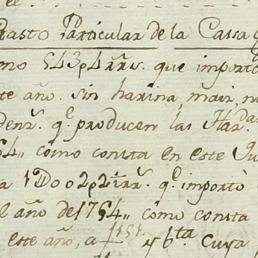 el
Gasto Particular de la Cassa
mo 543p4rrs. que importó
te año. sin harina, maiz,
denrs. qe. producen las Hdas.
64,, como consta en este
a 1Do02p2rrs. qe. importó
el año de 1764,, como consta
este año, a f151. y bta. Cuya